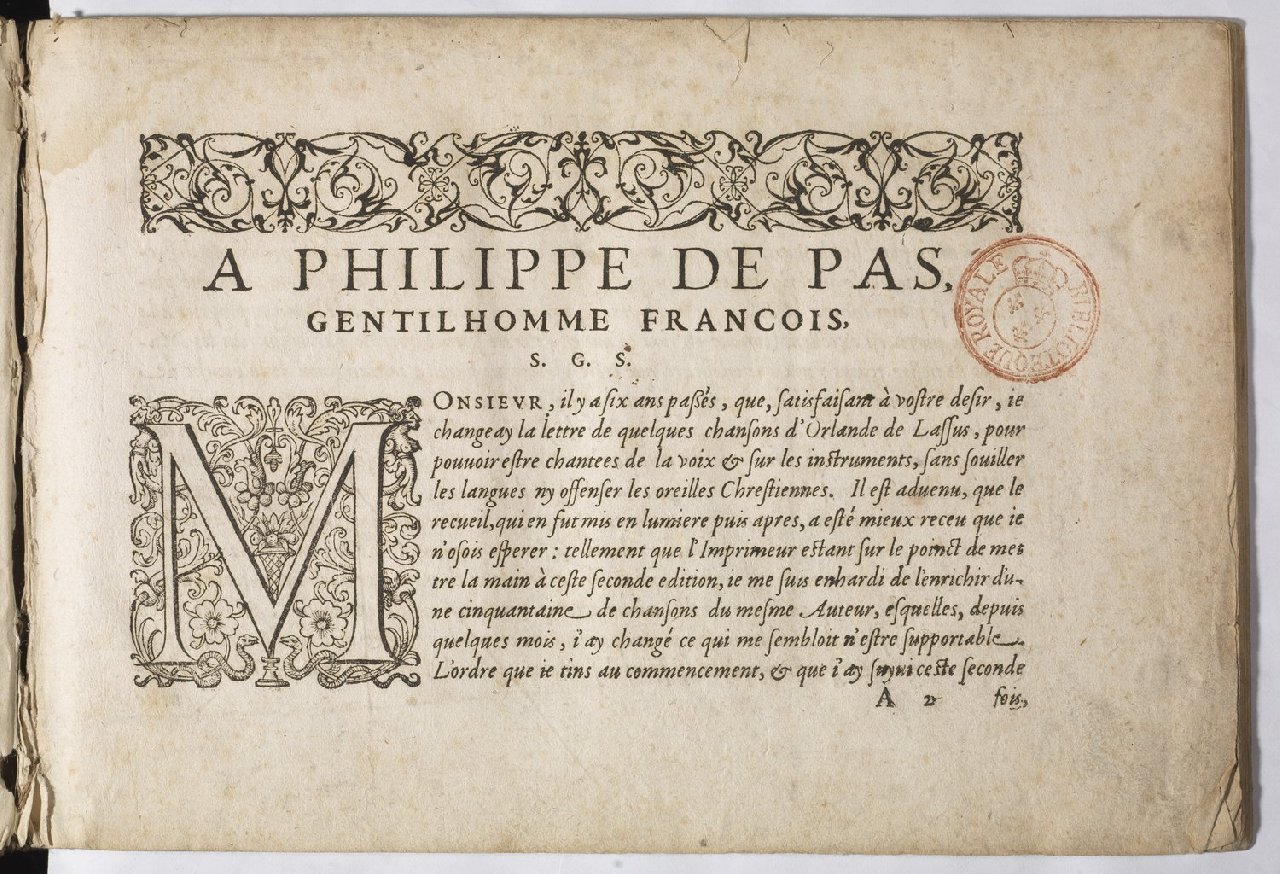 A PHILIPPE DE PAS,
GENTILHOMME FRANCOIS,
S. G. S.
BIBLIOTEQUE ROYALE
MONSIEVR, il y a six ans passés, que, satisfaisant à vostre desir, ie
changeay la lettre de quelques chansons d'Orlande de Lassus, pour
pouuoir estre chantees de la voix & sur les instruments, sans souiller
les langues ny offenser les oreilles Chrestiennes. Il est aduenu, que le
recueil, qui en fut mis en lumiere puis apres, a esté mieux receu que ie
n'osois esperer : tellement que l'Imprimeur estant sur le poinct de met
tre la main à ceste seconde edition, ie me suis enhardi de l'enrichir d'u-
ne cinquantaine de chansons du mesme Auteur, esquelles, depuis
quelques mois, i'ay changé ce qui me sembloit n'estre supportable
L'ordre que ie tins au commencement, & que i'ay suyui ceste seconde
A 2 fois,